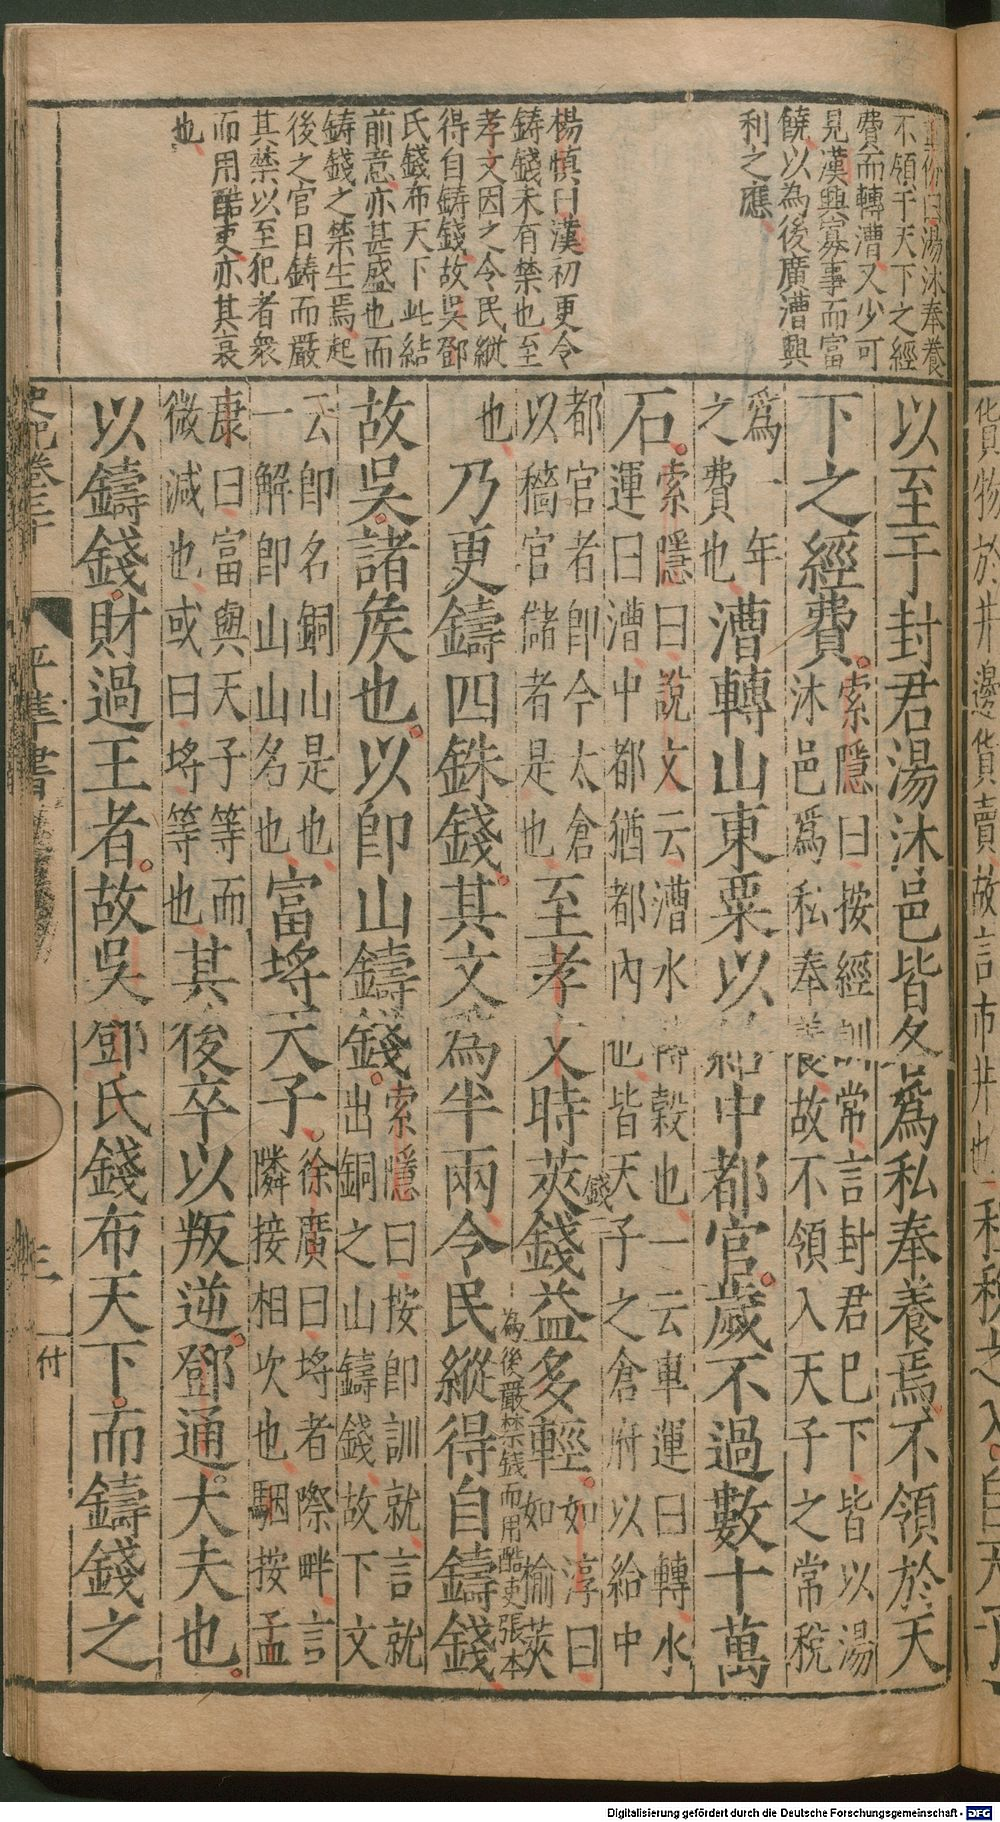 湯沐奉養
不領于天下之經
費而轉漕又少可
見漢興寡事而富
饒以為後廣漕興
利之應
楊慎曰漢初更令
鑄錢未有禁也至
孝文因之令民縱
得自鑄錢故吳鄧
氏錢布天下此結
前意亦甚盛也而
鑄錢之禁生焉起
後之官日鑄而嚴
其禁以至犯者衆
而用酷吏亦其衰
也
以至于封君湯沐邑皆各爲私奉養焉不領於天
下之經費。索隱曰按經訓常言封君巳下皆以湯
沐邑爲私奉養故不領入天子之常稅
爲一年
之費也漕轉山東粟以給中都官歲不過數十萬
石。索隱曰說文云漕水轉穀也一云車運曰轉水
運曰漕中都猶都內也皆天子之倉府以給中
都官者即今太倉
以穡官儲者是也至孝文時莢錢益多輕。如淳曰
如榆莢
錢
也乃更鑄四銖錢。其文爲半兩令民縱得自鑄錢
為後嚴禁錢而用酷吏張本
故吳諸侯也。以即山鑄錢。索隱曰按即訓就言就
出銅之山鑄錢故下文
云即名銅山是也
一解即山山名也富埒天子。徐廣曰埒者際畔言
隣接相次也駰按孟
康曰富與天子等而
微減也或曰埒等也其後卒以叛逆。鄧通。大夫也。
以鑄錢。財過王者。故吳鄧氏錢布天下。而鑄錢之
史記卷三十
平準書
三
付
貨物於井邊貨賣故言市井也
Digitalisierung gefördert durch die Deutsche Forschungsgemeinschaft - DFG